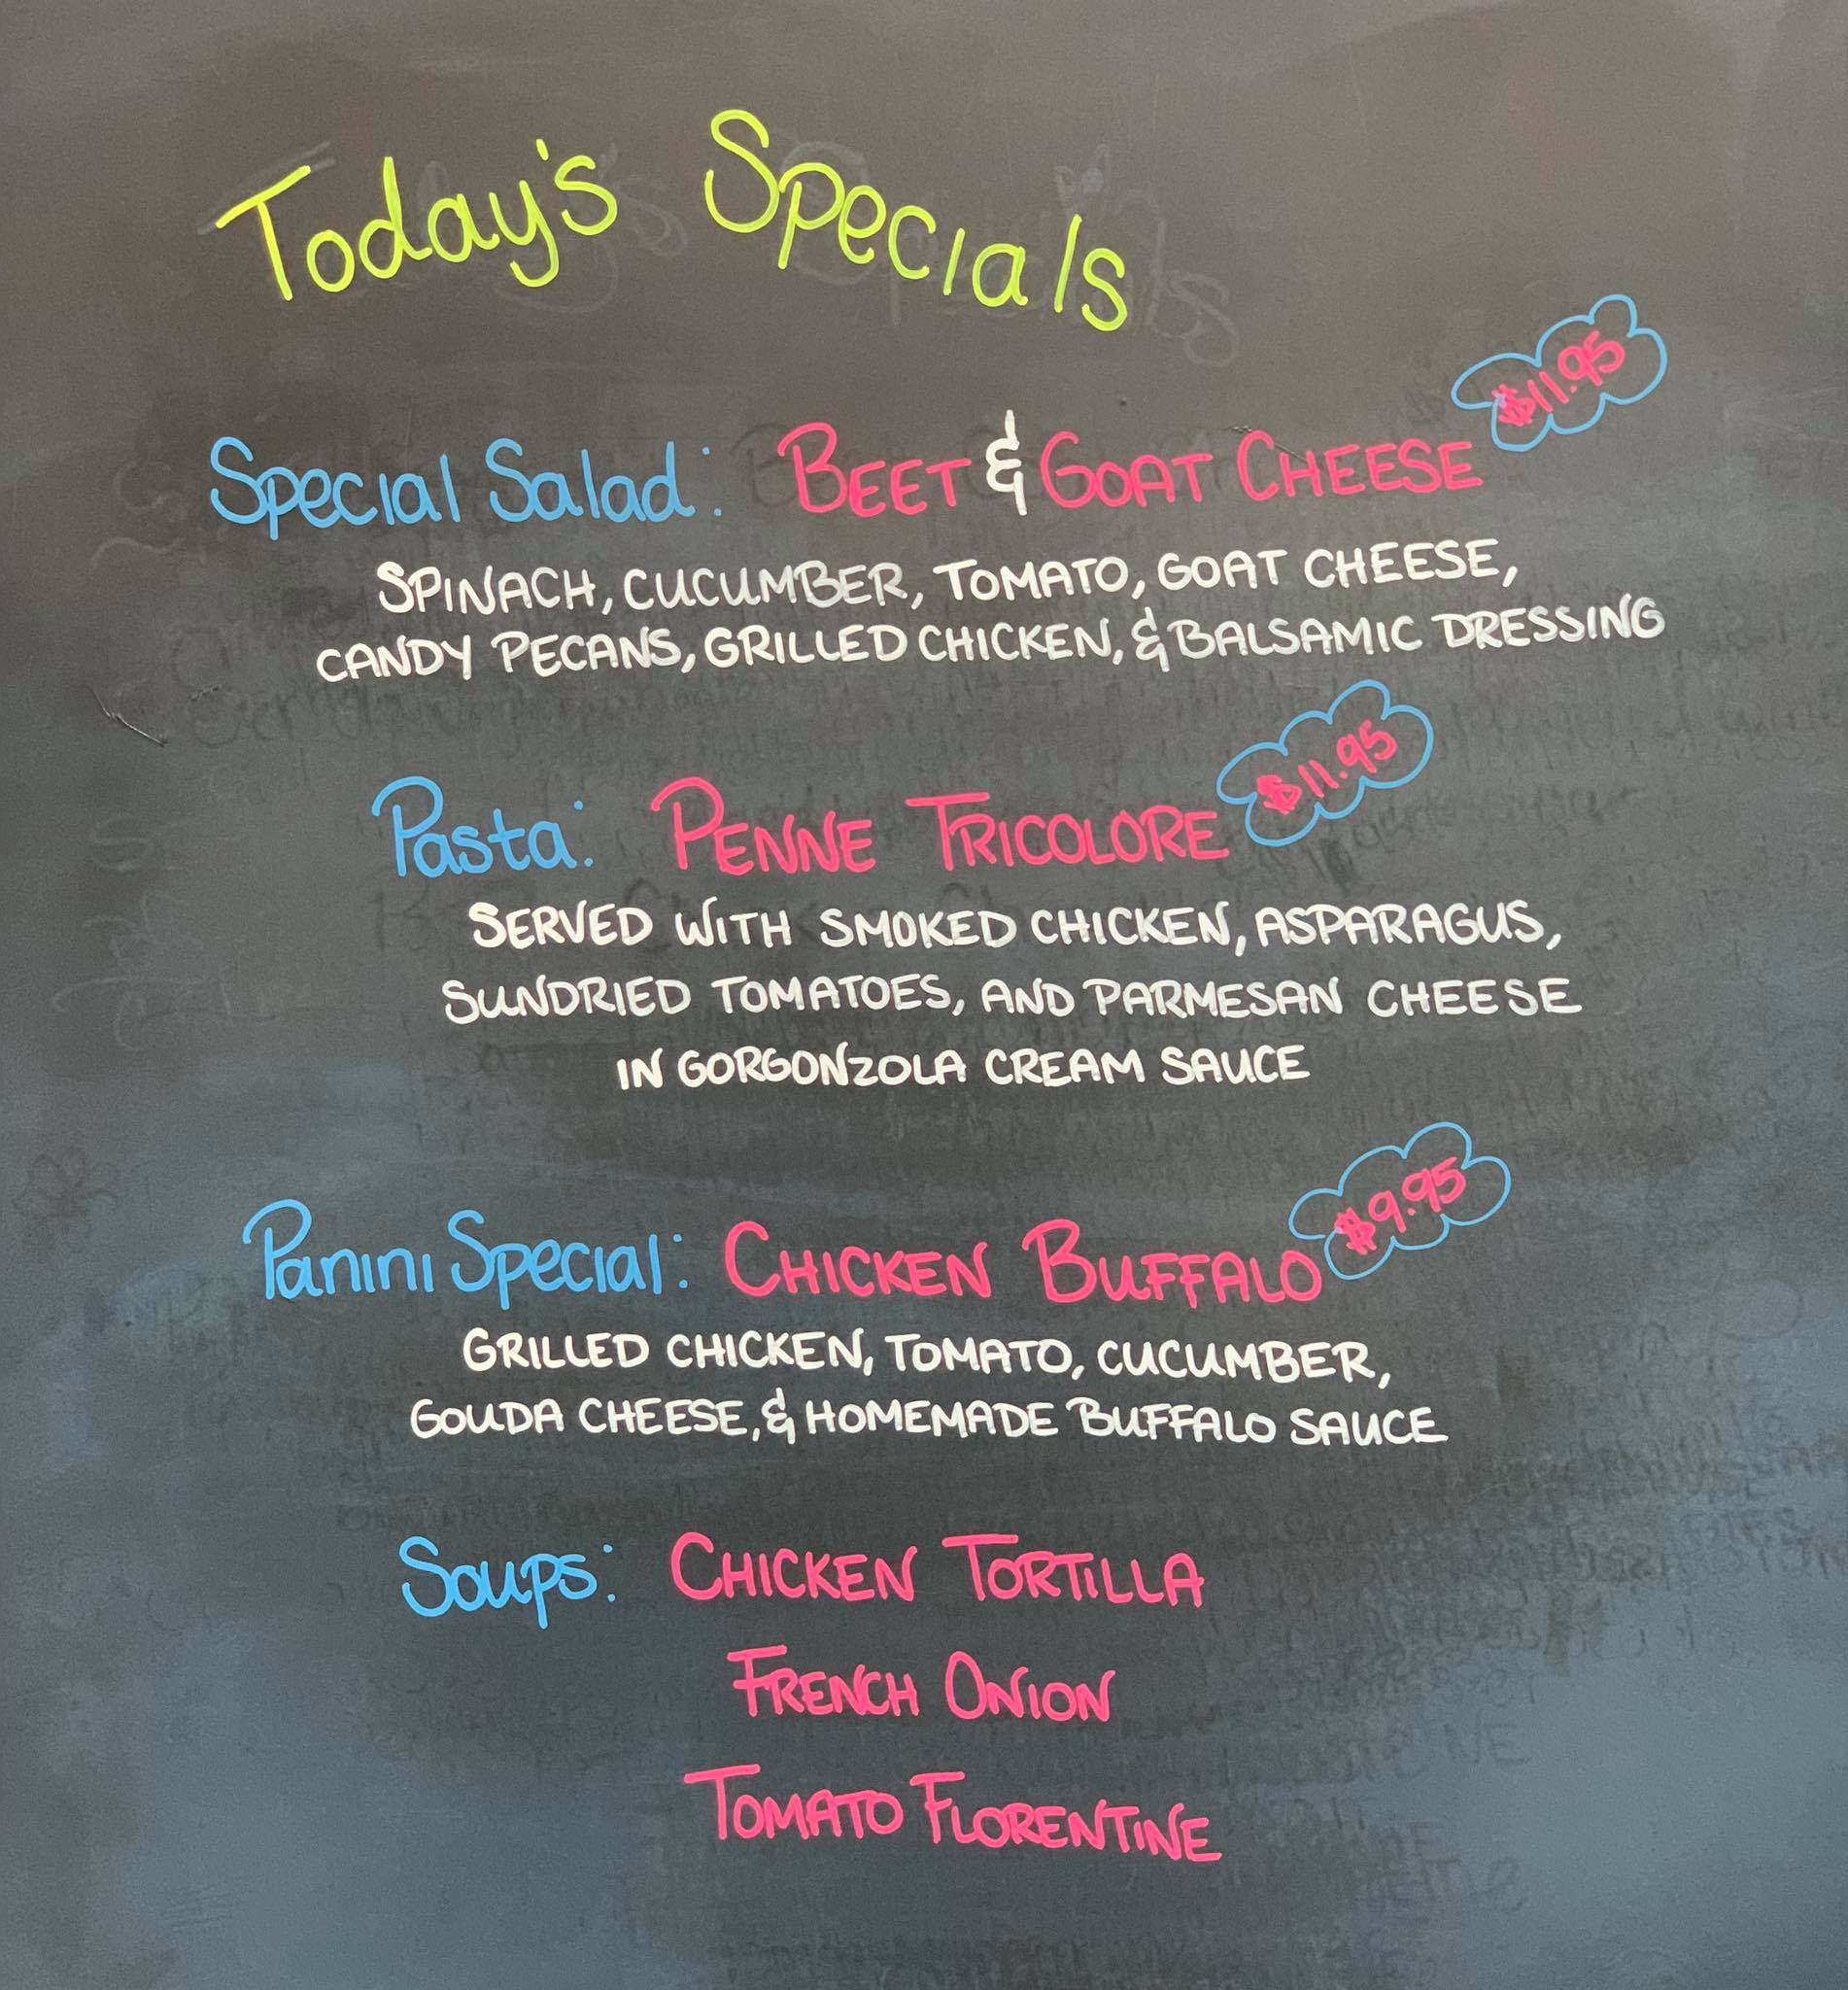 Today's Specials
$11.95
Special Salad: BEET & GOAT CHEESE
SPINACH, CUCUMBER, TOMATO, GOAT CHEESE,
CANDY PECANS, GRILLED CHICKEN, & BALSAMIC DRESSING
$11.95
Pasta: PENNE TRICOLORE
SERVED WITH SMOKED CHICKEN, ASPARAGUS,
SUNDRIED TOMATOES, AND PARMESAN CHEESE
IN GORGONZOLA CREAM SAUCE
$9.95
Panini Special: CHICKEN BUFFALO
GRILLED CHICKEN, TOMATO, CUCUMBER,
GOUDA CHEESE, & HOMEMADE BUFFALO SAUCE
Soups: CHICKEN TORTILLA
FRENCH ONION
TOMATO FLORENTINE